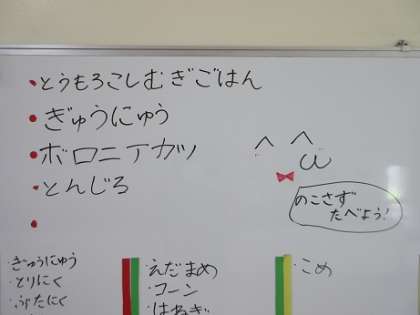 とうもろこしむぎごはん
ぎゅうにゅう
ボロニアカツ
とんじる
のこさず
たべよう!
ぎゅうにゅう
とりにく
ぶたにく
えだまめ
コーン
はねぎ
こめ